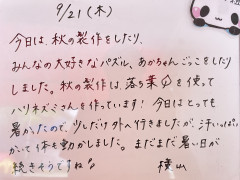 9/21(木)
今日は、秋の製作をしたり、
みんなの大好きなパズル、あかちゃんごっこをしたり
しました。秋の製作は、落ち葉を使って
ハリネズミさんを作っています！今日はとっても
暑かったので、少しだけ外へ行きましたが、汗いっぱい
かいて体を動かしました。まだまだ暑い日が
続きそうですね。 横山